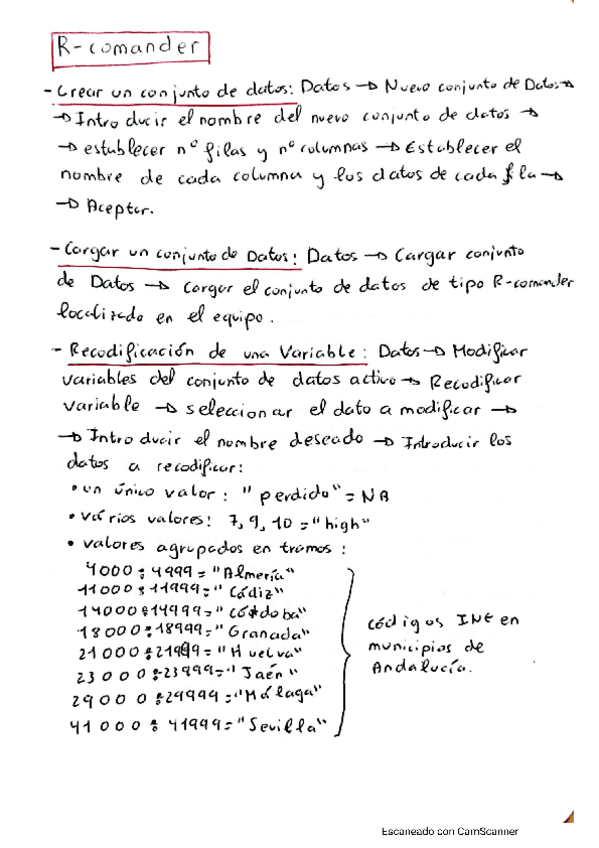 R-comander
- Crear un conjunto de datos: Datos → Nuevo conjunto de Datos →
→ Introducir el nombre del nuevo conjunto de datos →
→ establecer nº filas y nº columnas → Establecer el
nombre de cada columna y los datos de cada fila →
→ Aceptar.
- Cargar un conjunto de Datos: Datos → Cargar conjunto
de Datos → Cargar el conjunto de datos de tipo R-comander
localizado en el equipo.
- Recodificación de una Variable: Datos → Modificar
variables del conjunto de datos activo → Recodificar
variable → seleccionar el dato a modificar →
→ Introducir el nombre deseado → Introducir los
datos a recodificar:
• un único valor: "perdido" = NA
• vários valores: 7, 9, 10 = "high"
• valores agrupados en tramos:
4000:4999 = "Almería"
11000:11999 = "Cádiz"
14000:14999 = "Córdoba"
18000:18999 = "Granada"
21000:21999 = "Huelva"
23000:23999 = "Jaén"
29000:29999 = "Málaga"
41000:41999 = "Sevilla"
códigos INE en
municipios de
Andalucía.
Escaneado con CamScanner